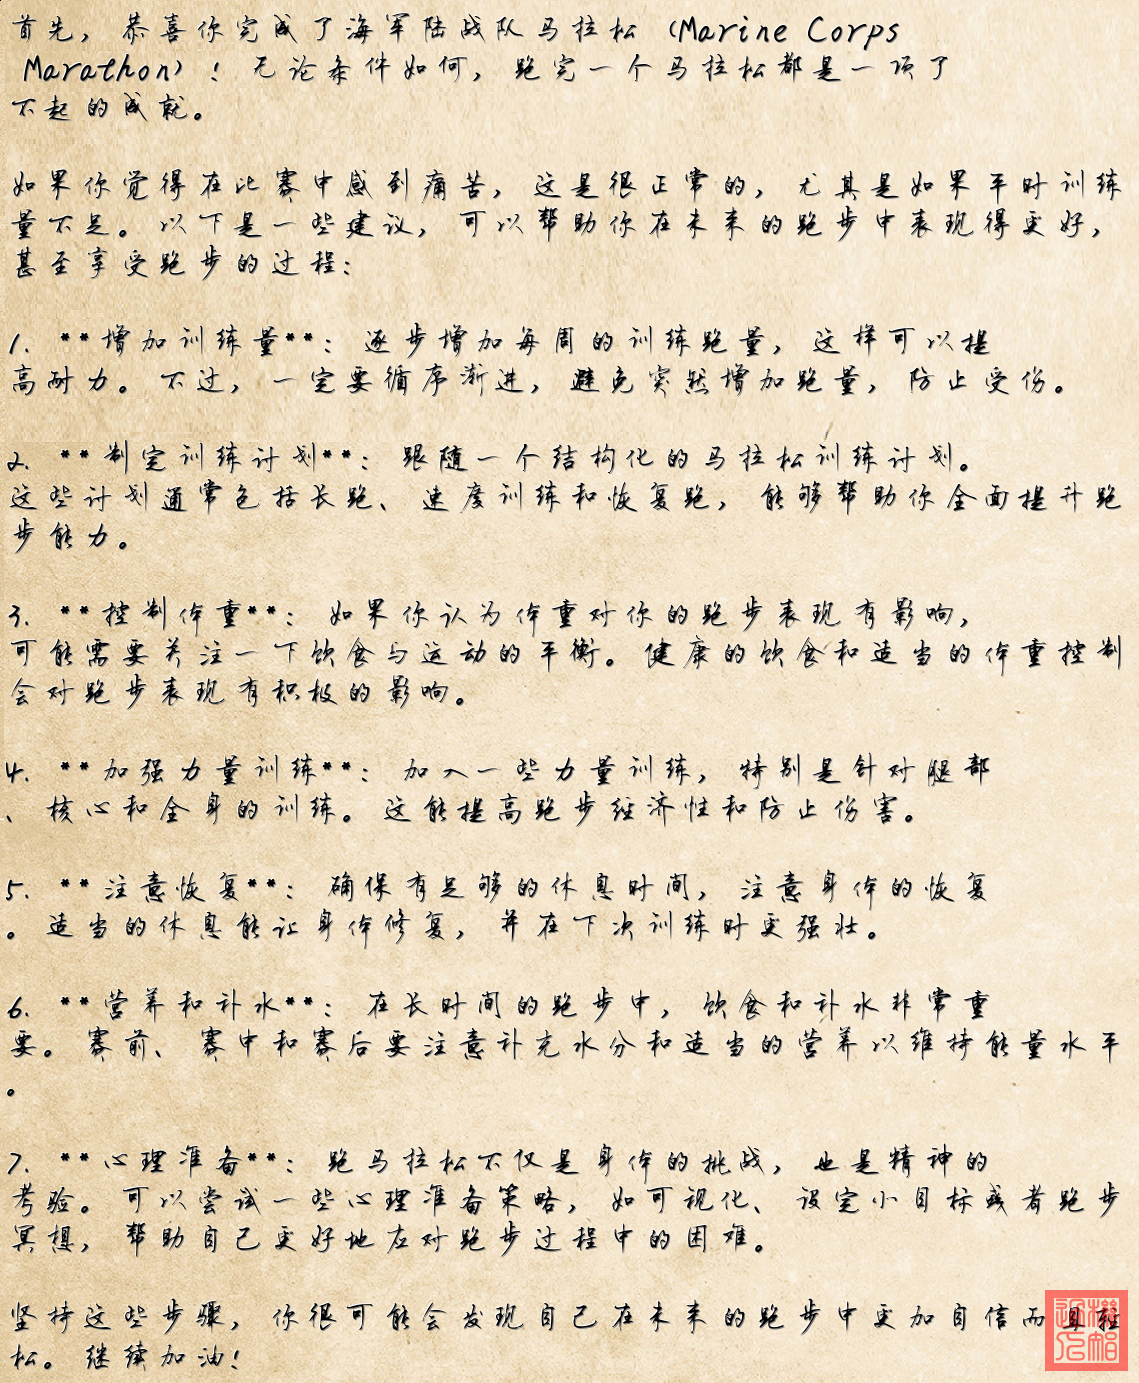 首先，恭喜你完成了海军陆战队马拉松（Marine Corps
Marathon）！无论条件如何，跑完一个马拉松都是一项了
不起的成就。
如果你觉得在比赛中感到痛苦，这是很正常的，尤其是如果平时训练
量不足。以下是一些建议，可以帮助你在未来的跑步中表现得更好，
甚至享受跑步的过程：
1. **增加训练量**：逐步增加每周的训练跑量，这样可以提
高耐力。不过，一定要循序渐进，避免突然增加跑量，防止受伤。
2. **制定训练计划**：跟随一个结构化的马拉松训练计划。
这些计划通常包括长跑、速度训练和恢复跑，能够帮助你全面提升跑
步能力。
3. **控制体重**：如果你认为体重对你的跑步表现有影响，
可能需要关注一下饮食与运动的平衡。健康的饮食和适当的体重控制
会对跑步表现有积极的影响。
4. **加强力量训练**：加入一些力量训练，特别是针对腿部
、核心和全身的训练。这能提高跑步经济性和防止伤害。
5. **注意恢复**：确保有足够的休息时间，注意身体的恢复
。适当的休息能让身体修复，并在下次训练时更强壮。
6. **营养和补水**：在长时间的跑步中，饮食和补水非常重
要。赛前、赛中和赛后要注意补充水分和适当的营养以维持能量水平
。
7. **心理准备**：跑马拉松不仅是身体的挑战，也是精神的
考验。可以尝试一些心理准备策略，如可视化、设定小目标或者跑步
冥想，帮助自己更好地应对跑步过程中的困难。
坚持这些步骤，你很可能会发现自己在未来的跑步中更加自信而且轻
松。继续加油！